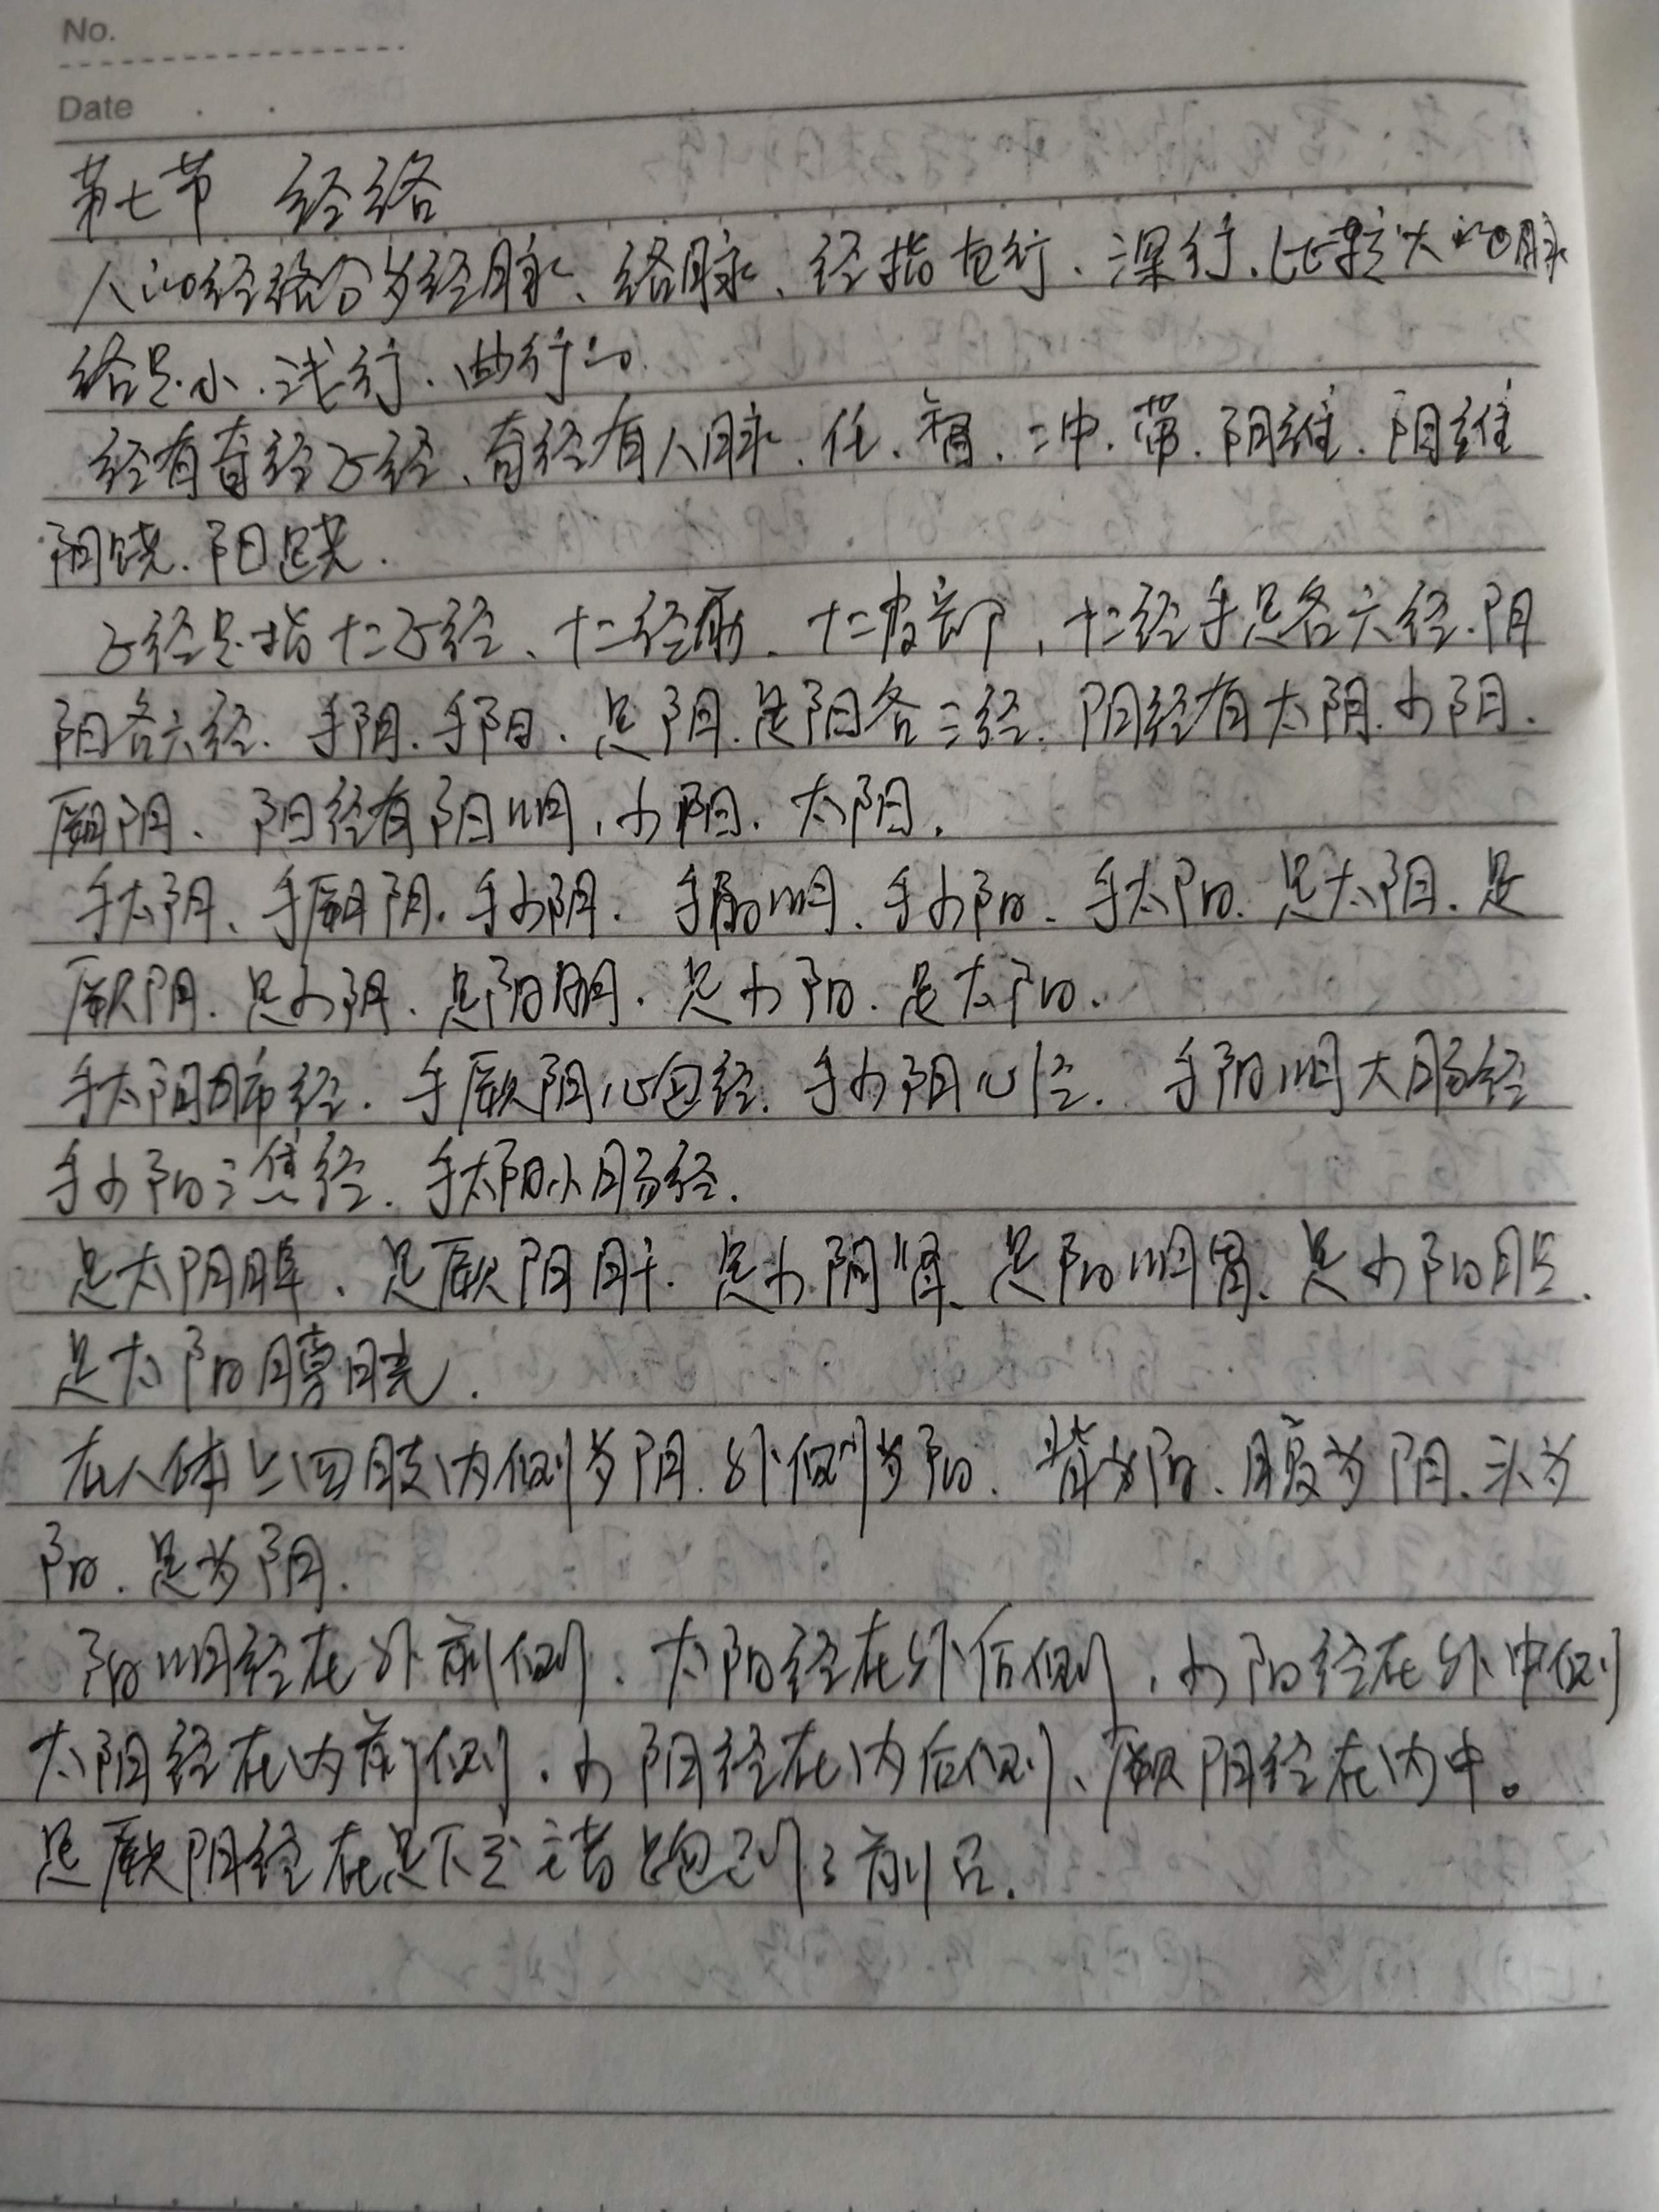 No.
Date
第七节 经络
人的经络分为经脉、络脉、经指直行、深行、比较大的脉
络是小、浅行、曲行的
经有奇经正经、奇经有八脉、任、督、冲、带、阴维、阳维
阴跷、阳跷.
正经是指十二正经、十二经筋、十二皮部,十二经手足各六经、阴
阳各六经、手阴、手阳、足阴、足阳各三经、阴经有太阴、少阴、
厥阴、阳经有阳明,少阳、太阳.
手太阴、手厥阴、手少阴、手阳明、手少阳、手太阳、足太阴、足
厥阴、足少阴、足阳明、足少阳、足太阳.
手太阴肺经、手厥阴心包经、手少阴心经、手阳明大肠经
手少阳三焦经、手太阳小肠经.
足太阴脾、足厥阴肝、足少阴肾、足阳明胃、足少阳胆、
足太阳膀胱.
在人体上四肢内侧为阴、外侧为阳、背为阳、腹为阴、头为
阳、足为阴.
阳明经在外前侧、太阳经在外后侧,少阳经在外中侧
太阴经在内前侧、少阴经在内后侧、厥阴经在内中。
足厥阴经在足下